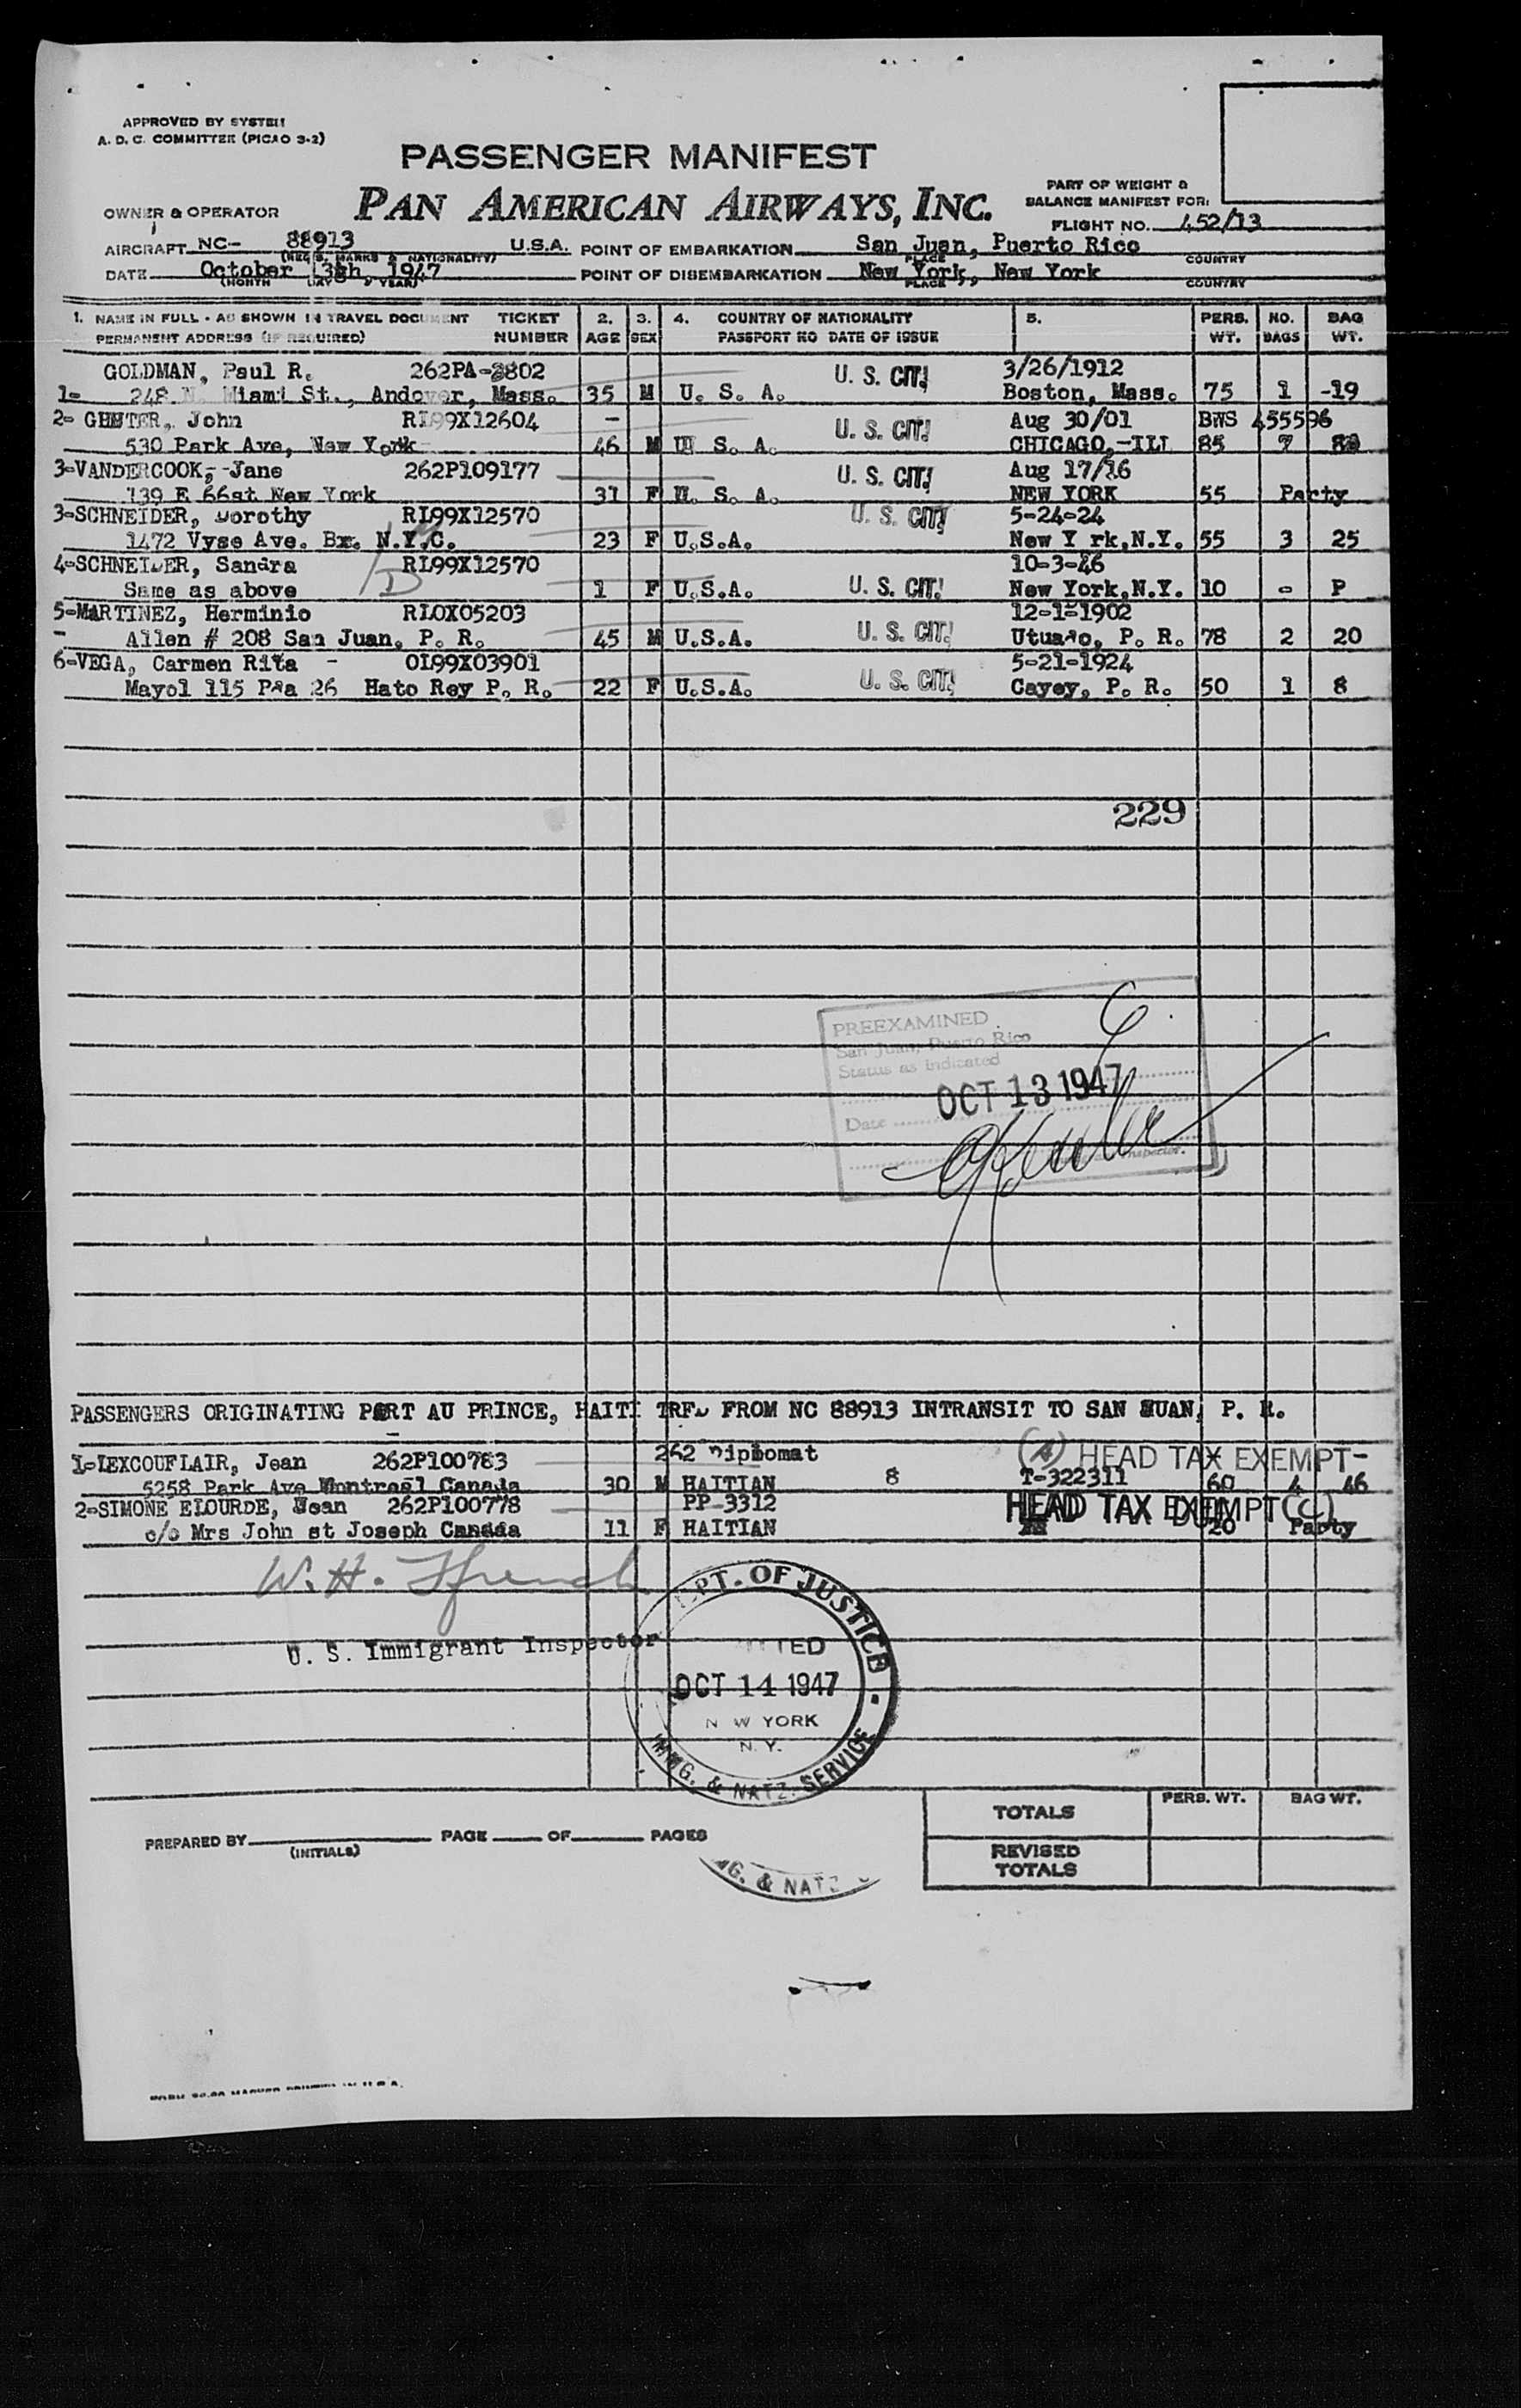 APPROVED BY SYSTEM
A. D. C. COMMITTEE (PICAO 3-2)
PASSENGER MANIFEST
PAN AMERICAN AIRWAYS, INC.
PART OF WEIGHT &
BALANCE MANIFEST FOR:
OWNER & OPERATOR
FLIGHT NO. 452/13
AIRCRAFT NC- 88913 U.S.A. POINT OF EMBARKATION San Juan, Puerto Rico
(REG'S. MARKS & NATIONALITY) PLACE COUNTRY
DATE October 13th, 1947 POINT OF DISEMBARKATION New York, New York
(MONTH DAY YEAR) PLACE COUNTRY
1. NAME IN FULL - AS SHOWN IN TRAVEL DOCUMENT TICKET 2. 3. 4. COUNTRY OF NATIONALITY 5. PERS. NO. BAG
PERMANENT ADDRESS (IF REQUIRED) NUMBER AGE SEX PASSPORT NO DATE OF ISSUE WT. BAGS WT.
GOLDMAN, Paul R. 262PA-3802 U. S. CIT! 3/26/1912
1- 248 N. Miami St., Andover, Mass. 35 M U. S. A. Boston, Mass. 75 1 -19
2- John RI99X12604 - U. S. CIT! Aug 30/01 BWS 455596
530 Park Ave, New York 46 M U. S. A. CHICAGO,-ILL 85 7
3-VANDERCOOK,--Jane 262P109177 U. S. CIT! Aug 17/16
139 E 66st New York 31 F U. S. A. NEW YORK 55 Party
3-SCHNEIDER, Dorothy RI99X12570 U. S. CIT! 5-24-24
1472 Vyse Ave. Bx. N.Y.C. 23 F U.S.A. New Y rk,N.Y. 55 3 25
4-SCHNEIDER, Sandra RI99X12570 10-3-46
Same as above D 1 F U.S.A. U. S. CIT! New York,N.Y. 10 - P
5-MARTINEZ, Herminio RIOX05203 12-1-1902
- Allen # 208 San Juan, P. R. 45 M U.S.A. U. S. CIT! Utuado, P. R. 78 2 20
6-VEGA, Carmen Rita - OI99X03901 5-21-1924
Mayol 115 Pda 26 Hato Rey P. R. 22 F U.S.A. U. S. CIT! Cayey, P. R. 50 1 8
229
PREEXAMINED
San Juan, Puerto Rico
Status as indicated
OCT 13 1947
Date
Inspector.
PASSENGERS ORIGINATING PORT AU PRINCE, HAITI TRF. FROM NC 88913 INTRANSIT TO SAN JUAN, P. R.
1-LEXCOUFLAIR, Jean 262P100783 262 Diplomat (A) HEAD TAX EXEMPT-
5258 Park Ave Montreal Canada 30 M HAITIAN 8 T-322311 60 4 46
2-SIMONE ELOURDE, Jean 262P100778 PP 3312 HEAD TAX EXEMPT (C)
c/o Mrs John st Joseph Canada 11 F HAITIAN 20 Party
W. H.
U. S. Immigrant Inspector
DEPT. OF JUSTICE
OCT 14 1947
NEW YORK
N. Y.
IMMG. & NATZ. SERVICE
TOTALS PERS. WT. BAG WT.
PREPARED BY PAGE OF PAGES
(INITIALS)
REVISED
TOTALS
& NATZ